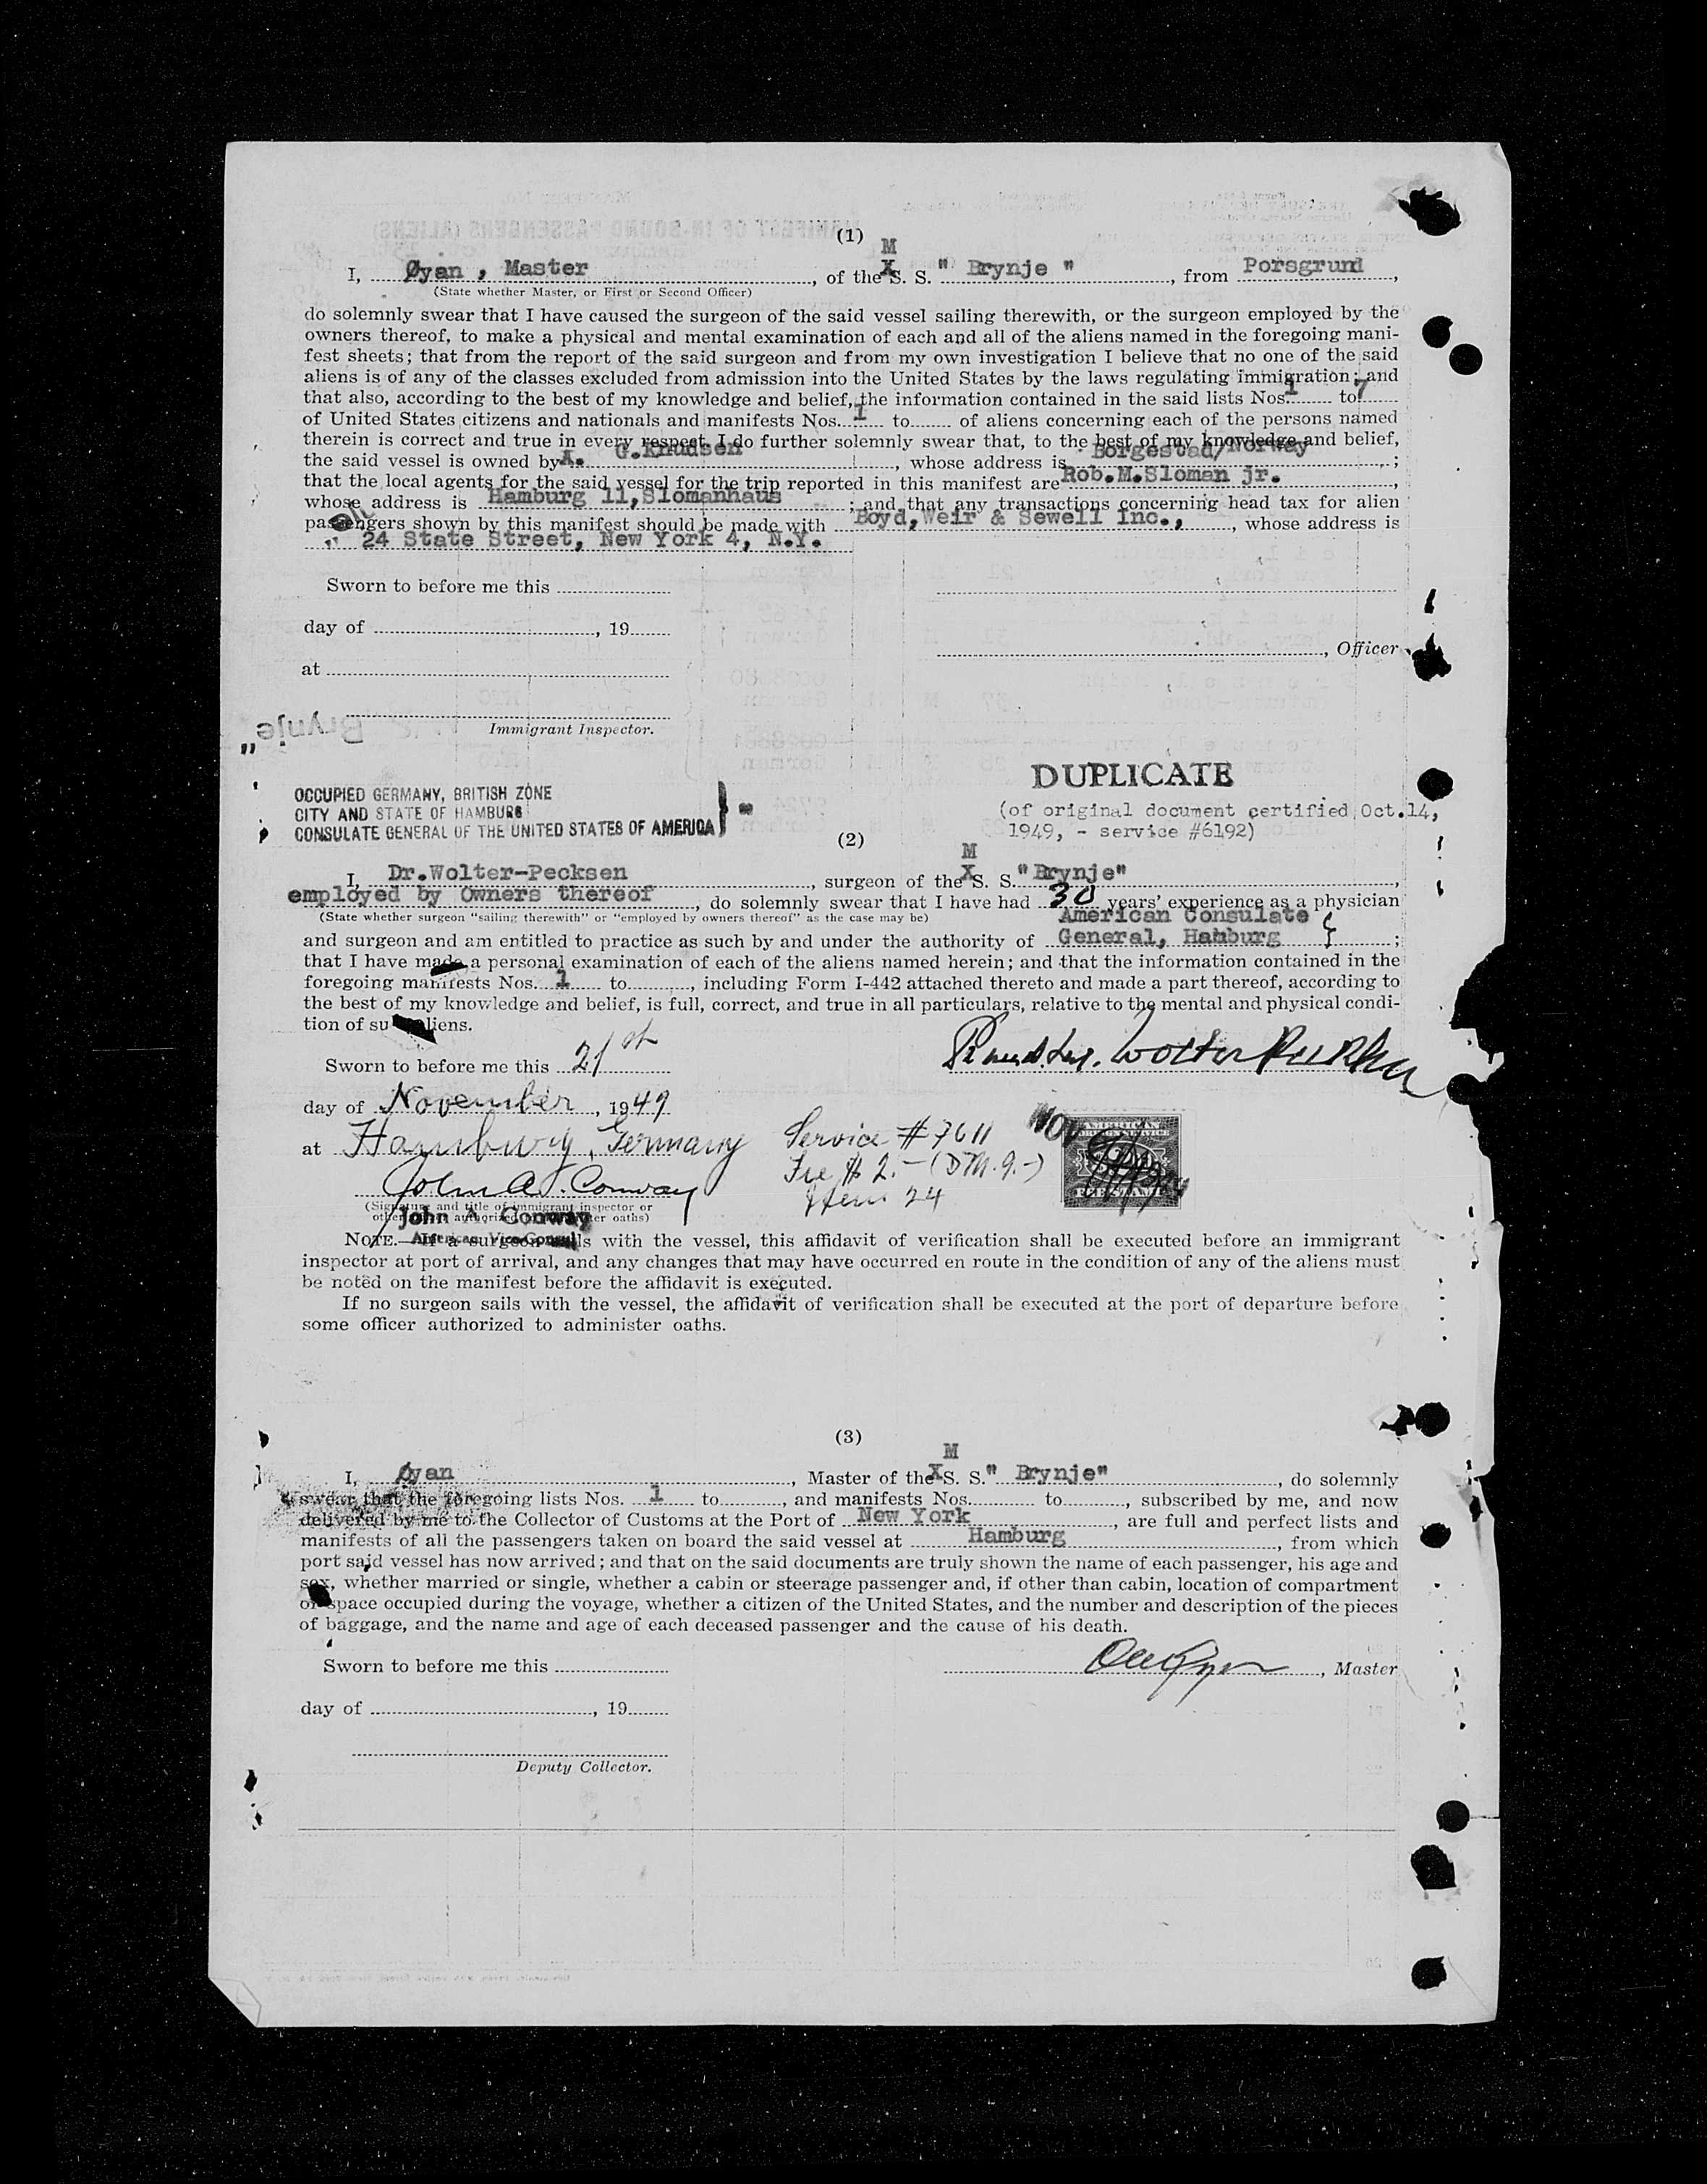 (1)
M
I, Øyan , Master, of the X S. S. " Brynje ", from Porsgrund,
(State whether Master, or First or Second Officer)
do solemnly swear that I have caused the surgeon of the said vessel sailing therewith, or the surgeon employed by the
owners thereof, to make a physical and mental examination of each and all of the aliens named in the foregoing mani-
fest sheets; that from the report of the said surgeon and from my own investigation I believe that no one of the said
aliens is of any of the classes excluded from admission into the United States by the laws regulating immigration; and
that also, according to the best of my knowledge and belief, the information contained in the said lists Nos. 1 to 7
of United States citizens and nationals and manifests Nos. 1 to of aliens concerning each of the persons named
therein is correct and true in every respect. I do further solemnly swear that, to the best of my knowledge and belief,
the said vessel is owned by A. G.Knudsen, whose address is Borgestad/Norway;
that the local agents for the said vessel for the trip reported in this manifest are Rob.M.Sloman jr.,
whose address is Hamburg 11,Slomanhaus; and that any transactions concerning head tax for alien
passengers shown by this manifest should be made with Boyd,Weir & Sewell Inc., , whose address is
24 State Street, New York 4, N.Y.
Sworn to before me this
day of , 19
, Officer
at
Immigrant Inspector.
"Brynje"
DUPLICATE
OCCUPIED GERMANY, BRITISH ZONE
CITY AND STATE OF HAMBURG
CONSULATE GENERAL OF THE UNITED STATES OF AMERICA
(of original document certified Oct.14,
1949, - service #6192)
(2)
M
I, Dr.Wolter-Pecksen, surgeon of the X S. S. "Brynje",
employed by Owners thereof, do solemnly swear that I have had 30 years' experience as a physician
(State whether surgeon "sailing therewith" or "employed by owners thereof" as the case may be)
American Consulate
and surgeon and am entitled to practice as such by and under the authority of General, Hamburg;
that I have made a personal examination of each of the aliens named herein; and that the information contained in the
foregoing manifests Nos. 1 to , including Form I-442 attached thereto and made a part thereof, according to
the best of my knowledge and belief, is full, correct, and true in all particulars, relative to the mental and physical condi-
tion of su aliens.
Sworn to before me this 21st
day of November, 1949
at Hamburg, Germany
Service # 7611
Fee $ 2.- (DM. 9.-)
Item 24
NOV
AMERICAN
FOREIGN SERVICE
FEE STAMP
John A. Conway
(Signature and title of immigrant inspector or
other officer authorized to administer oaths)
John A. Conway
American Vice Consul
NOTE.—If a surgeon sails with the vessel, this affidavit of verification shall be executed before an immigrant
inspector at port of arrival, and any changes that may have occurred en route in the condition of any of the aliens must
be noted on the manifest before the affidavit is executed.
If no surgeon sails with the vessel, the affidavit of verification shall be executed at the port of departure before
some officer authorized to administer oaths.
(3)
M
I, Øyan, Master of the X S. S. " Brynje", do solemnly
swear that the foregoing lists Nos. 1 to , and manifests Nos. to , subscribed by me, and now
delivered by me to the Collector of Customs at the Port of New York, are full and perfect lists and
manifests of all the passengers taken on board the said vessel at Hamburg, from which
port said vessel has now arrived; and that on the said documents are truly shown the name of each passenger, his age and
sex, whether married or single, whether a cabin or steerage passenger and, if other than cabin, location of compartment
or space occupied during the voyage, whether a citizen of the United States, and the number and description of the pieces
of baggage, and the name and age of each deceased passenger and the cause of his death.
Sworn to before me this
, Master
day of , 19
Deputy Collector.